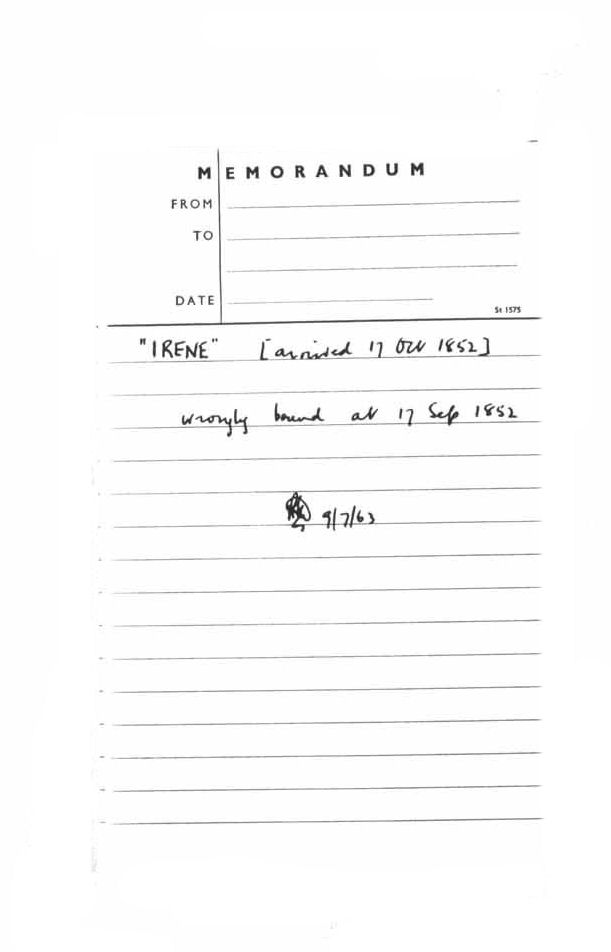 MEMORANDUM
FROM
TO
DATE
St 1575
"IRENE" [arrived 17 Oct 1852]
wrongly bound at 17 Sep 1852
9/7/63